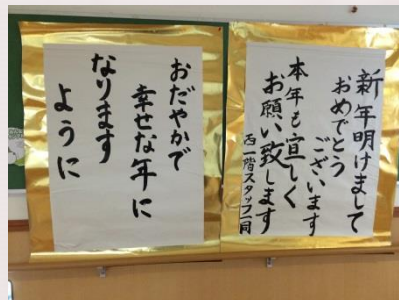 新年明けまして
おめでとう
ございます
本年も宜しく
お願い致します
西一階スタッフ一同
おだやかで
幸せな年に
なります
ように